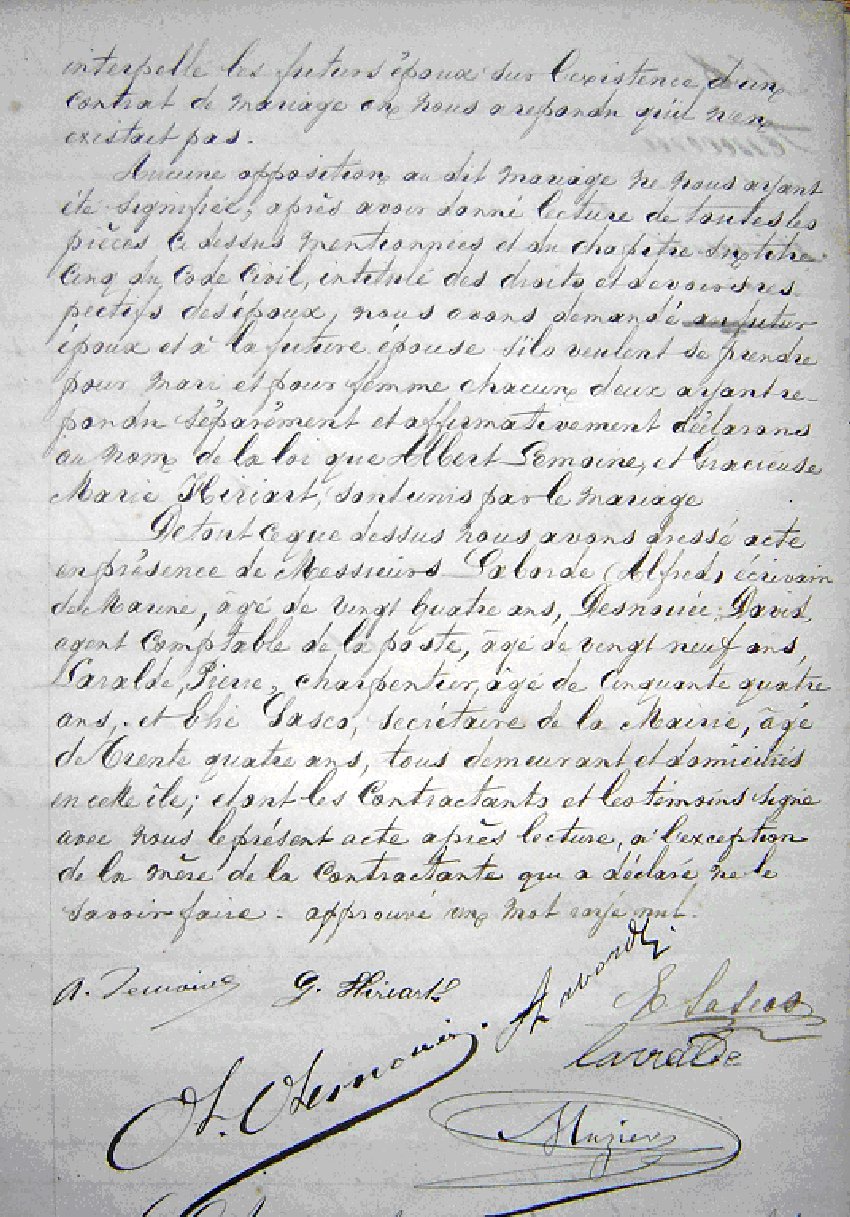 interpelle les futurs époux sur l'existence d'un
contrat de mariage on nous a repondu qu'il n'en
existait pas.
Aucune opposition au dit mariage ne nous ayant
été signifiée, après avoir donné lecture de toutes les
pièces ci dessus mentionnées et du chapitre six, titre
cinq du Code Civil, intitulé des droits et devoirs res-
pectifs des époux, nous avons demandé au futur
époux et à la future épouse s'ils veulent se prendre
pour mari et pour femme chacun d'eux ayant re-
pondu séparément et affirmativement déclarons
au nom de la loi que Albert Lemoine, et Gracieuse
Marie Hiriart, sont unis par le mariage
De tout ce que dessus nous avons dressé acte
en présence de Messieurs Laborde (Alfred) écrivain
de Marine, âgé de vingt quatre ans, David,
agent Comptable de la poste, âgé de vingt neuf ans,
Pierre, charpentier, âgé de Cinquante quatre
ans, et Elie Lasco, secrétaire de la Mairie, âgé
de Trente quatre ans, tous demeurant et domiciliés
en cette île; et ont les Contractants et les témoins signé
avec nous le présent acte après lecture, à l'exception
de la mère de la Contractante qui a déclaré ne le
savoir faire. approuvé un mot rayé nul.
A. Lemoine G. Hiriart A Laborde
E Lascos
Larralde